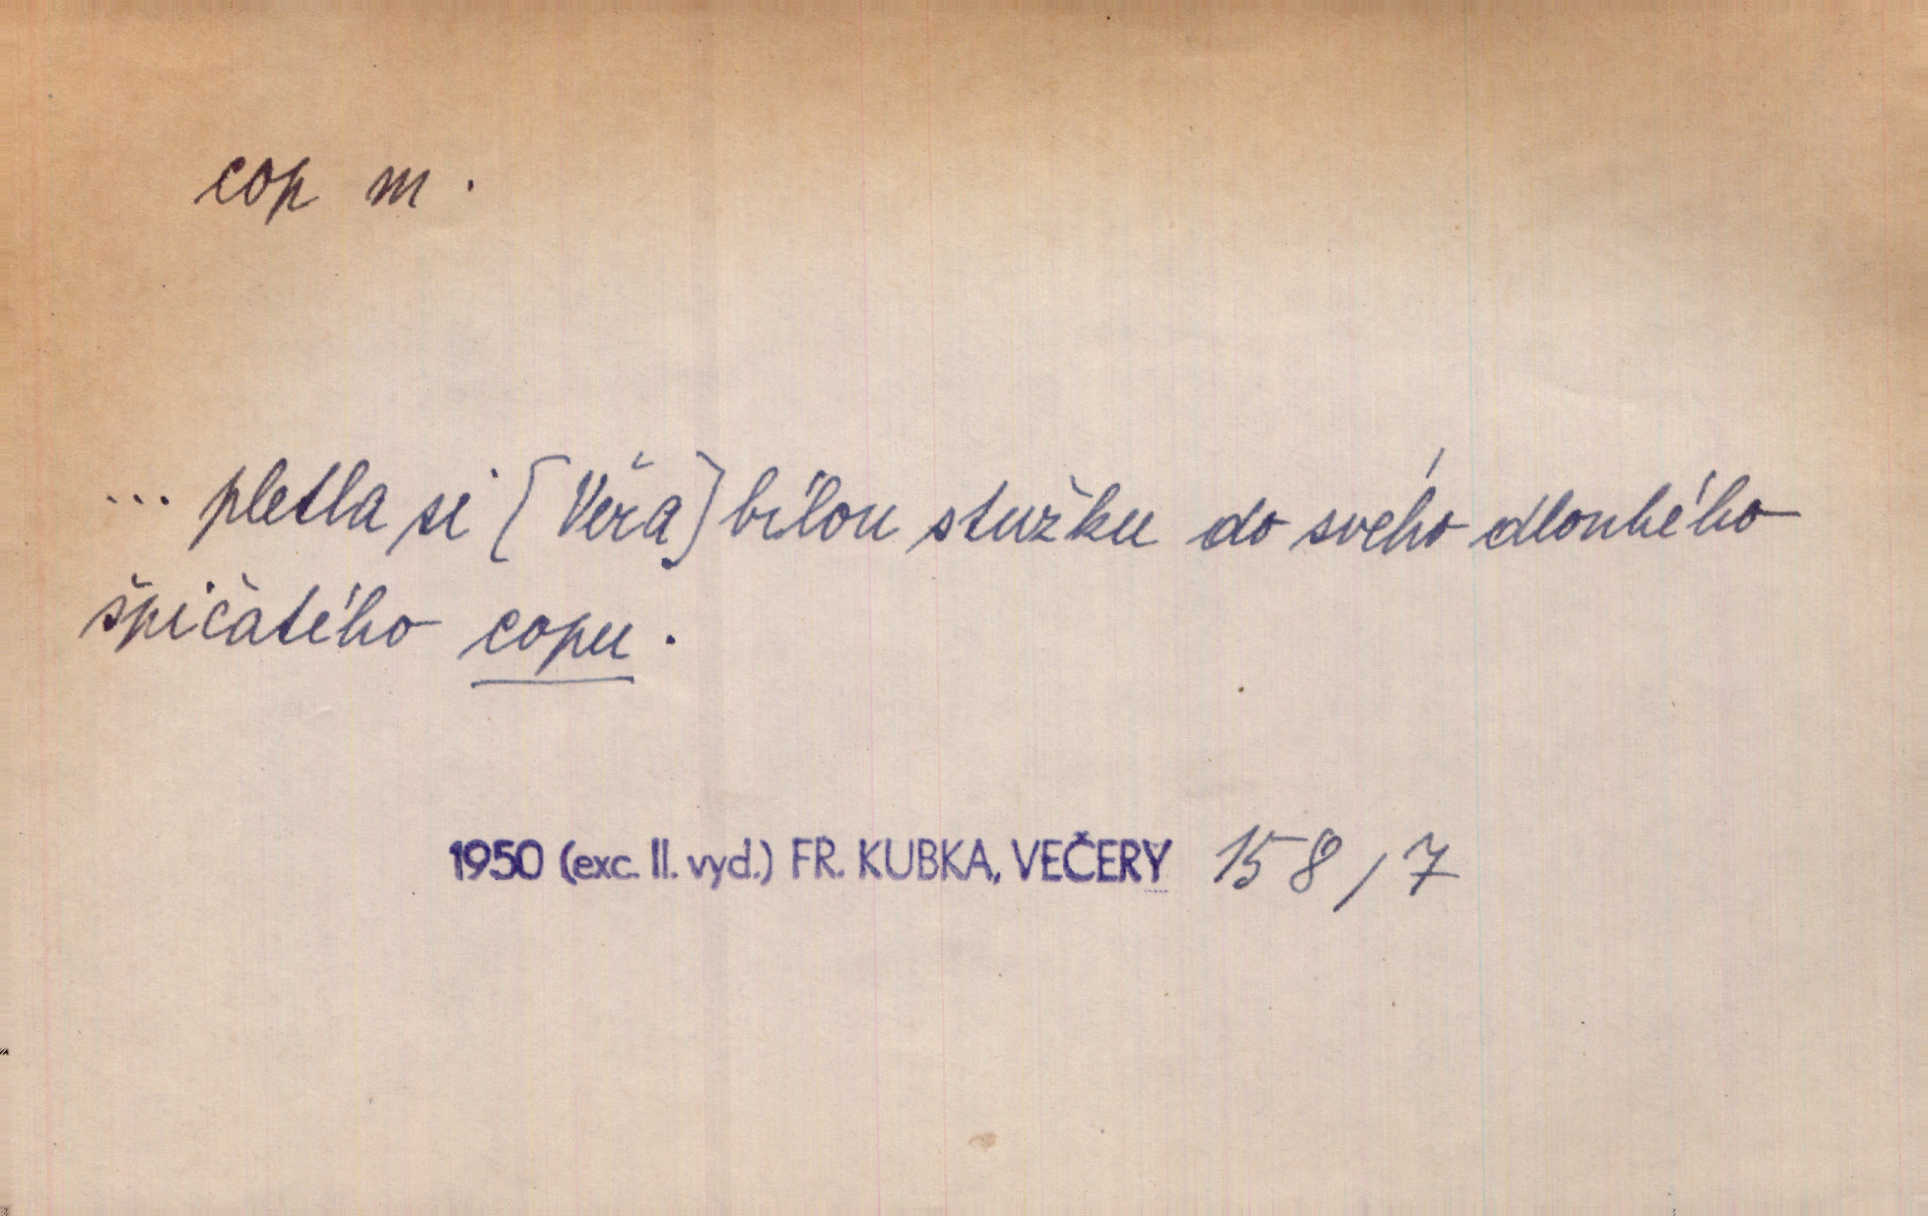 cop m.
... pletla si [Věra] bílou stužku do svého dlouhého
špičatého copu.
1950 (exc. II. vyd.) FR. KUBKA, VEČERY 158/7